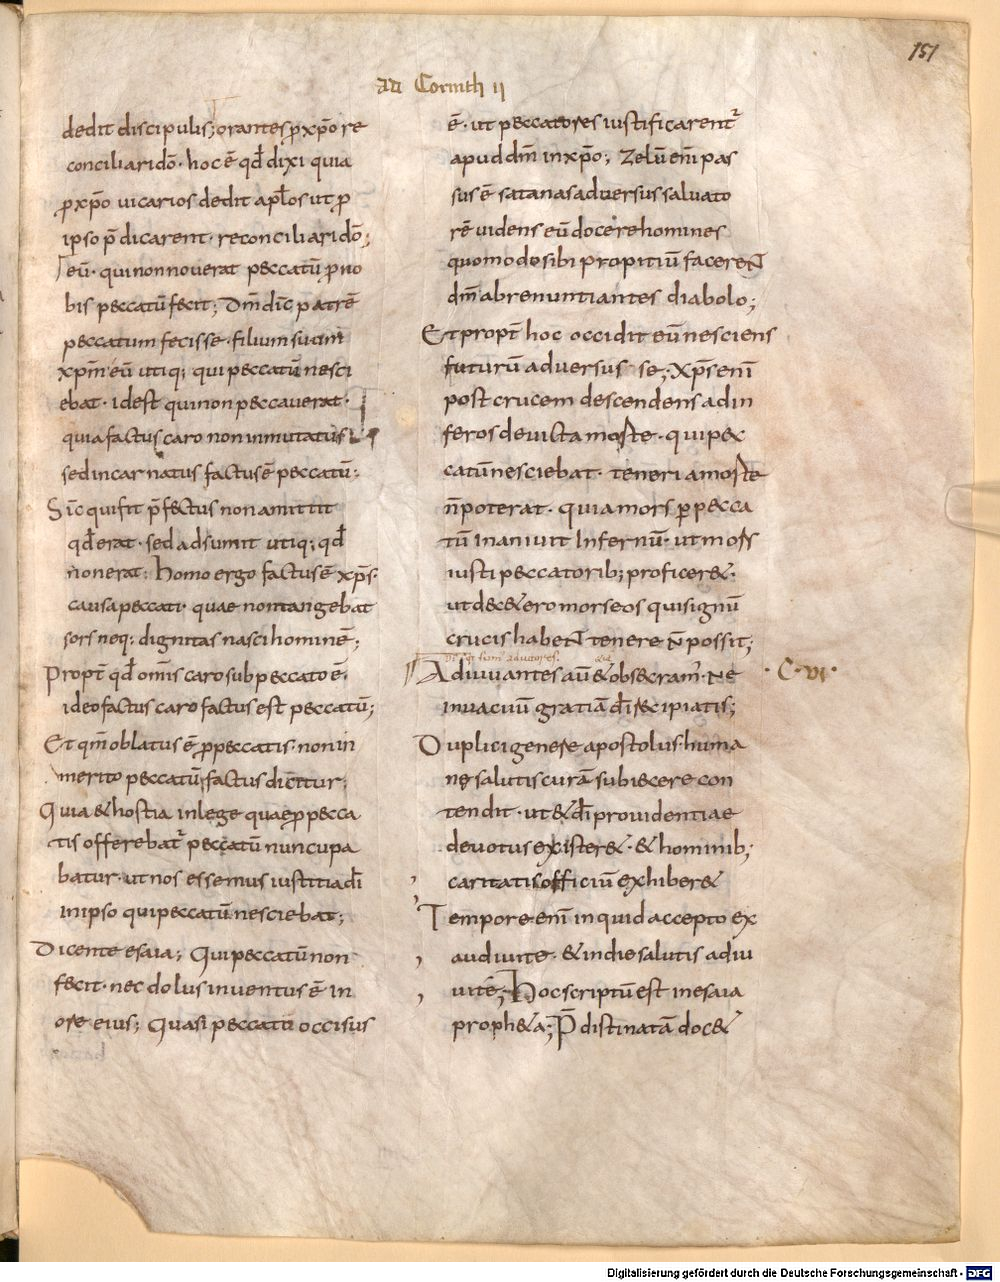 151
ad Corinth ii
dedit discipulis; orantes p xp̄o re
conciliari dō· hoc ē qd̄ dixi quia
p xp̄o uicarios dedit apl̄os ut p
ipso p̄dicarent· reconciliari dō;
eū· qui non nouerat peccatū p no
bis peccatū fecit; Dm̄ dic̄ patrē
peccatum fecisse· filium suum
xp̄m eū utiq; qui peccatū nesci
ebat· id est qui non peccauerat·
quia factus caro non inmutatus
sed incarnatus factus ē peccatū;
Sic̄ qui fit p̄fectus non amittit
qd̄ erat· sed adsumit utiq; qd̄
non erat; homo ergo factus ē xp̄s·
causa peccati· quae non tangebat
sors neq; dignitas nasci hominē;
Propt̄ qd̄ omīs caro sub peccato ē·
ideo factus caro factus est peccatū;
Et qm̄ oblatus ē p peccatis· non in
merito peccatū factus dicitur;
Quia & hostia in lege quae p pecca
tis offerebat᷑ peccatū nuncupa
batur· ut nos essemus iustitia dī
in ipso qui peccatū nesciebat;
Dicente esaia; Qui peccatū non
fecit· nec dolus inuentus ē in
ore eius; Quasi peccatū occisus
ē· ut peccatores iustificarent᷑
apud dm̄ in xp̄o; Zelū em̄ pas
sus ē satanas aduersus saluato
rē uidens eū docere homines
quomodo sibi propitiū facereNT
dm̄ abrenuntiantes diabolo;
Et propt̄ hoc occidit eū nesciens
futurū aduersus se; Xp̄s enī
post crucem descendens ad in
feros deuicta morte· qui pec
catū nesciebat· teneri a morte
n̄ poterat· quia mors p pecca
tū inaniuit Infernū· ut mors
iusti peccatorib; proficer&·
ut de c&ero mors eos qui signū
crucis habeNT tenere n̄ possit;
Adiuuantes aū & obsecram᷒ Ne · C· VI·
in uacuū gratiā dī recipiatis;
Duplici genere apostolus huma
nę salutis curā subiecere con
tendit· ut & dī prouidentiae
deuotus exister&· & hominib;
caritatis officiū exhiber&
Tempore enī inquid accepto ex
audiui te· & in die salutis adiu
ui te; Hoc scriptū est in esaia
proph&a; P̄distinatā doc&
Digitalisierung gefördert durch die Deutsche Forschungsgemeinschaft - DFG